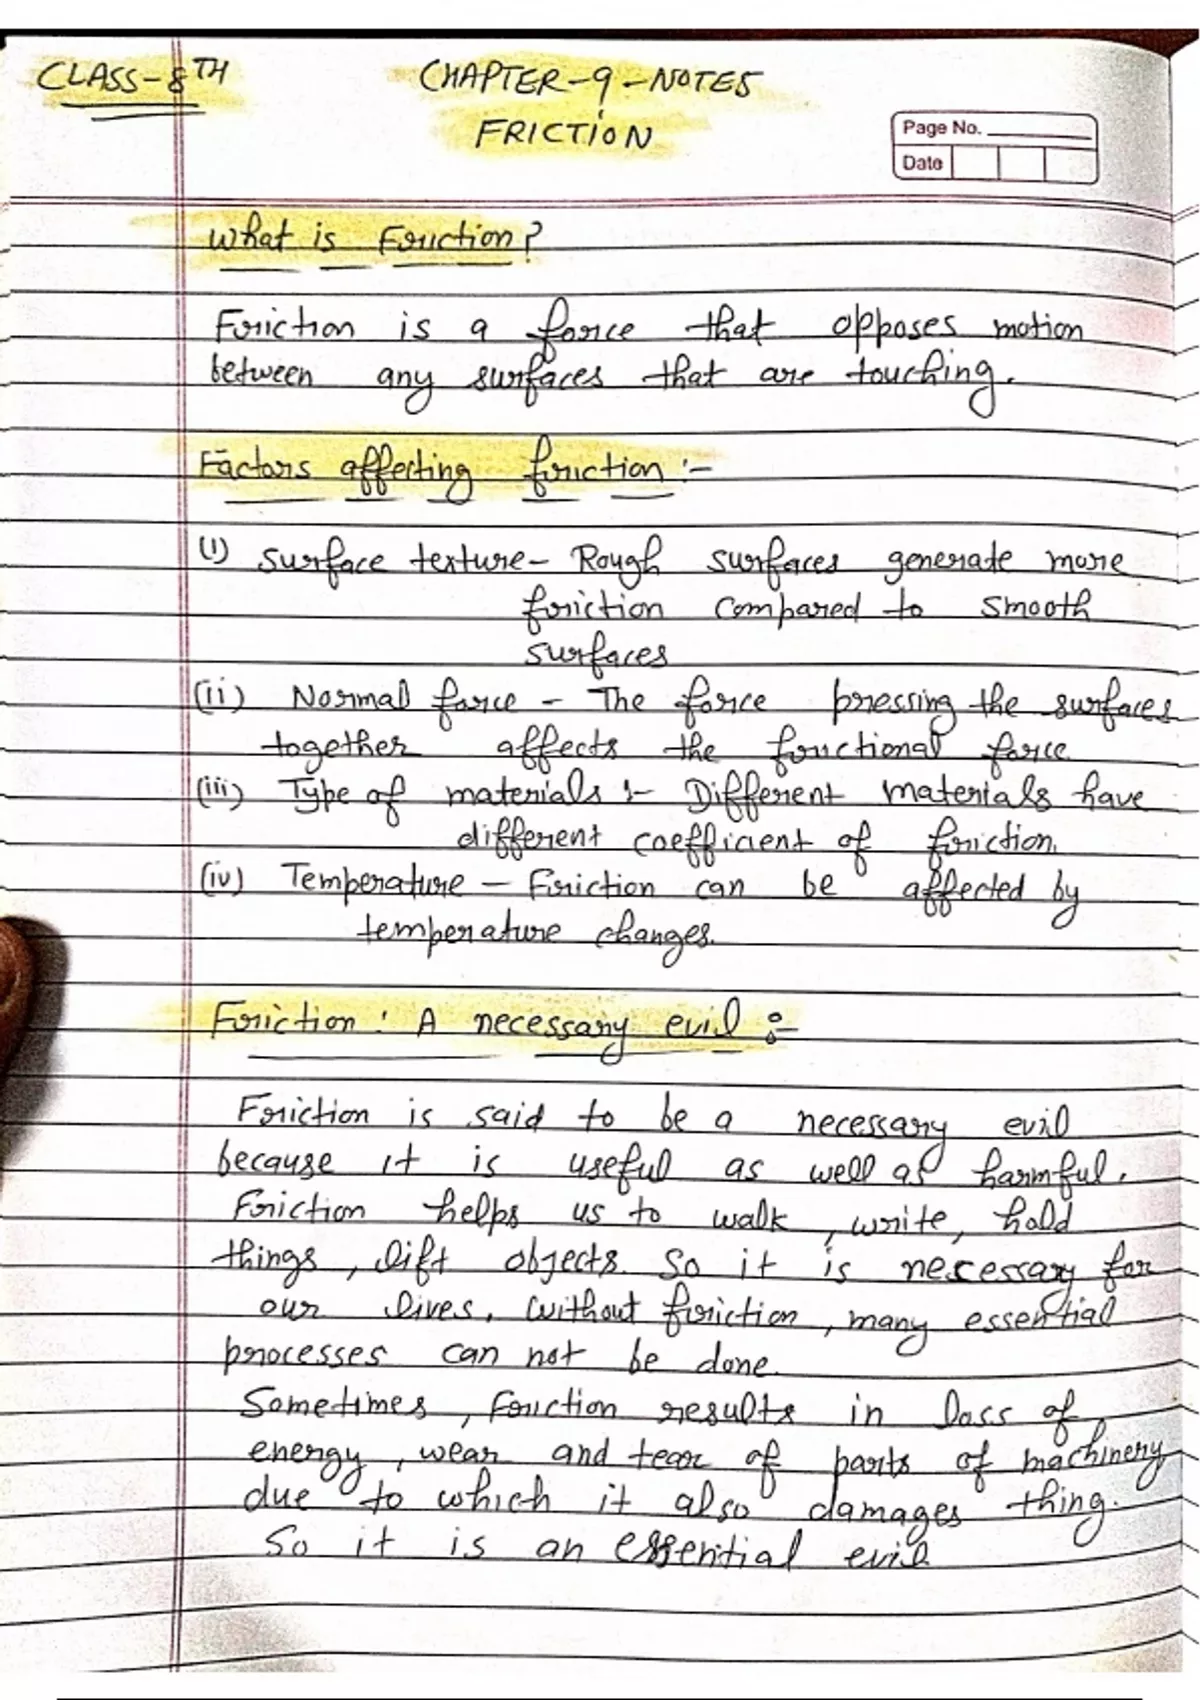 CLASS-8TH
CHAPTER-9-NOTES
FRICTION
Page No.
Date
What is Friction?
Friction is a force that opposes motion
between any surfaces that are touching.
Factors affecting friction :-
(i) Surface texture- Rough surfaces generate more
friction compared to smooth
surfaces
(ii) Normal force - The force pressing the surfaces
together affects the frictional force
(iii) Type of materials :- Different materials have
different coefficient of friction.
(iv) Temperature - Friction can be affected by
temperature changes.
Friction : A necessary evil :-
Friction is said to be a necessary evil
because it is useful as well as harmful.
Friction helps us to walk, write, hold
things, lift objects. So it is necessary for
our lives. Without friction, many essential
processes can not be done.
Sometimes, friction results in loss of
energy, wear and tear of parts of machinery
due to which it also damages thing.
So it is an essential evil